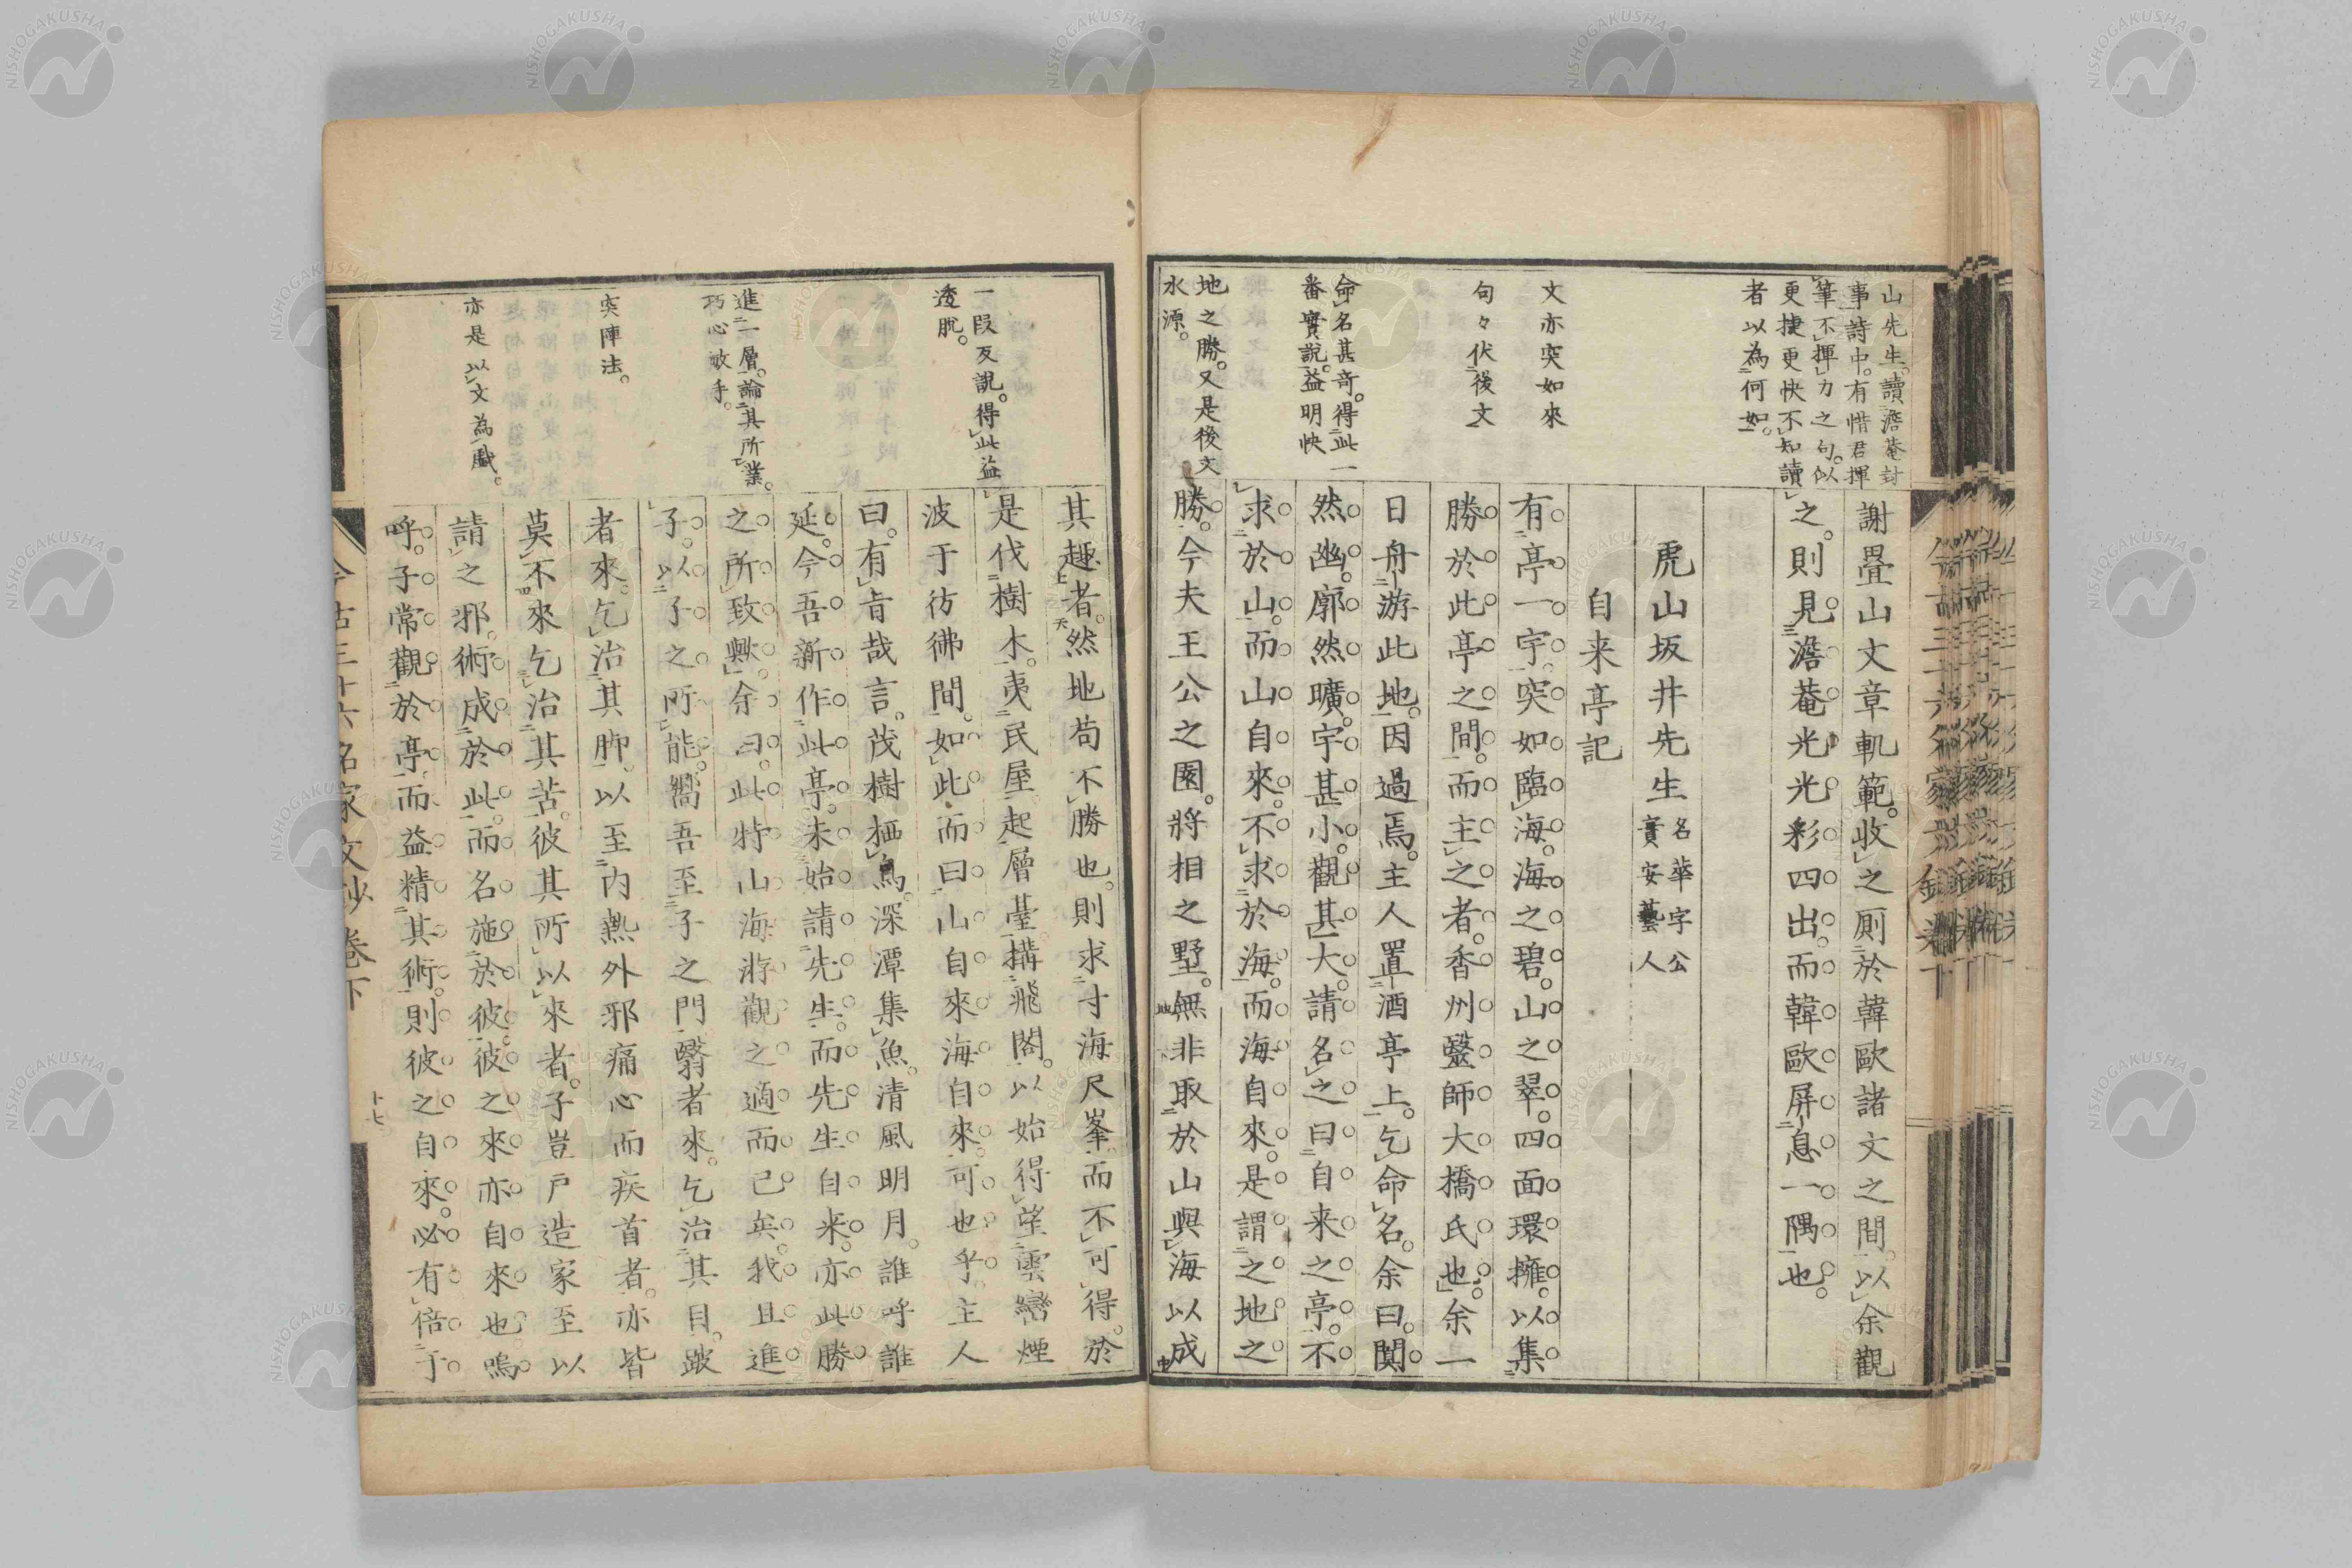 山先生。讀澹菴封
事詩中。有惜君揮
筆不揮力之句。似
更捷更快不知讀
者以為何如。
文亦突如來
句々伏後文
命名甚奇。得此一
番實說。益明快
地之勝。又是後文
水源。
謝疊山文章軌範。收之厠於韓歐諸文之間。以余觀
之。則見澹菴光光彩四出。而韓歐屏息一隅也。
虎山坂井先生
名華字公
實安藝人
自来亭記
有亭一宇。突如臨海。海之碧。山之翠。四面環擁。以集
勝於此亭之間。而主之者。香州毉師大橋氏也。余一
日舟游此地。因過焉。主人置酒亭上。乞命名。余曰。関
然幽。廓然曠。宇甚小。觀其大。請名之曰自来之亭。不
求於山。而山自來。不求於海。而海自來。是謂之地之
勝。今夫王公之園。將相之墅。無非取於山與海以成
一段反說。得此益
透脫。
進一層。論其所業。
巧心敏手。
突陣法。
亦是以文為戲。
其趣者。然地苟不勝也。則求寸海尺峯。而不可得。於
是伐樹木。夷民屋。起層臺。構飛閣。以始得望雲巒煙
波于彷彿間。如此而曰山自來海自來。可也乎。主人
曰。有旨哉言。茂樹栖鳥。深潭集魚。清風明月。誰呼誰
延。今吾新作此亭。未始請先生。而先生自来。亦此勝
之所致歟。余曰。此特山海游觀之適而已矣。我且進
子。以子之所能。嚮吾至子之門。翳者來。乞治其目。跛
者來。乞治其脚。以至內熱外邪痛心而疾首者。亦皆
莫不來乞治其苦。彼其所以來者。子豈戶造家至以
請之邪。術成於此。而名施於彼。彼之來亦自來也。嗚
呼。子常觀於亭。而益精其術。則彼之自來。必有倍于
今古三十六名家文鈔卷下
十七
NISHOGAKUSHA